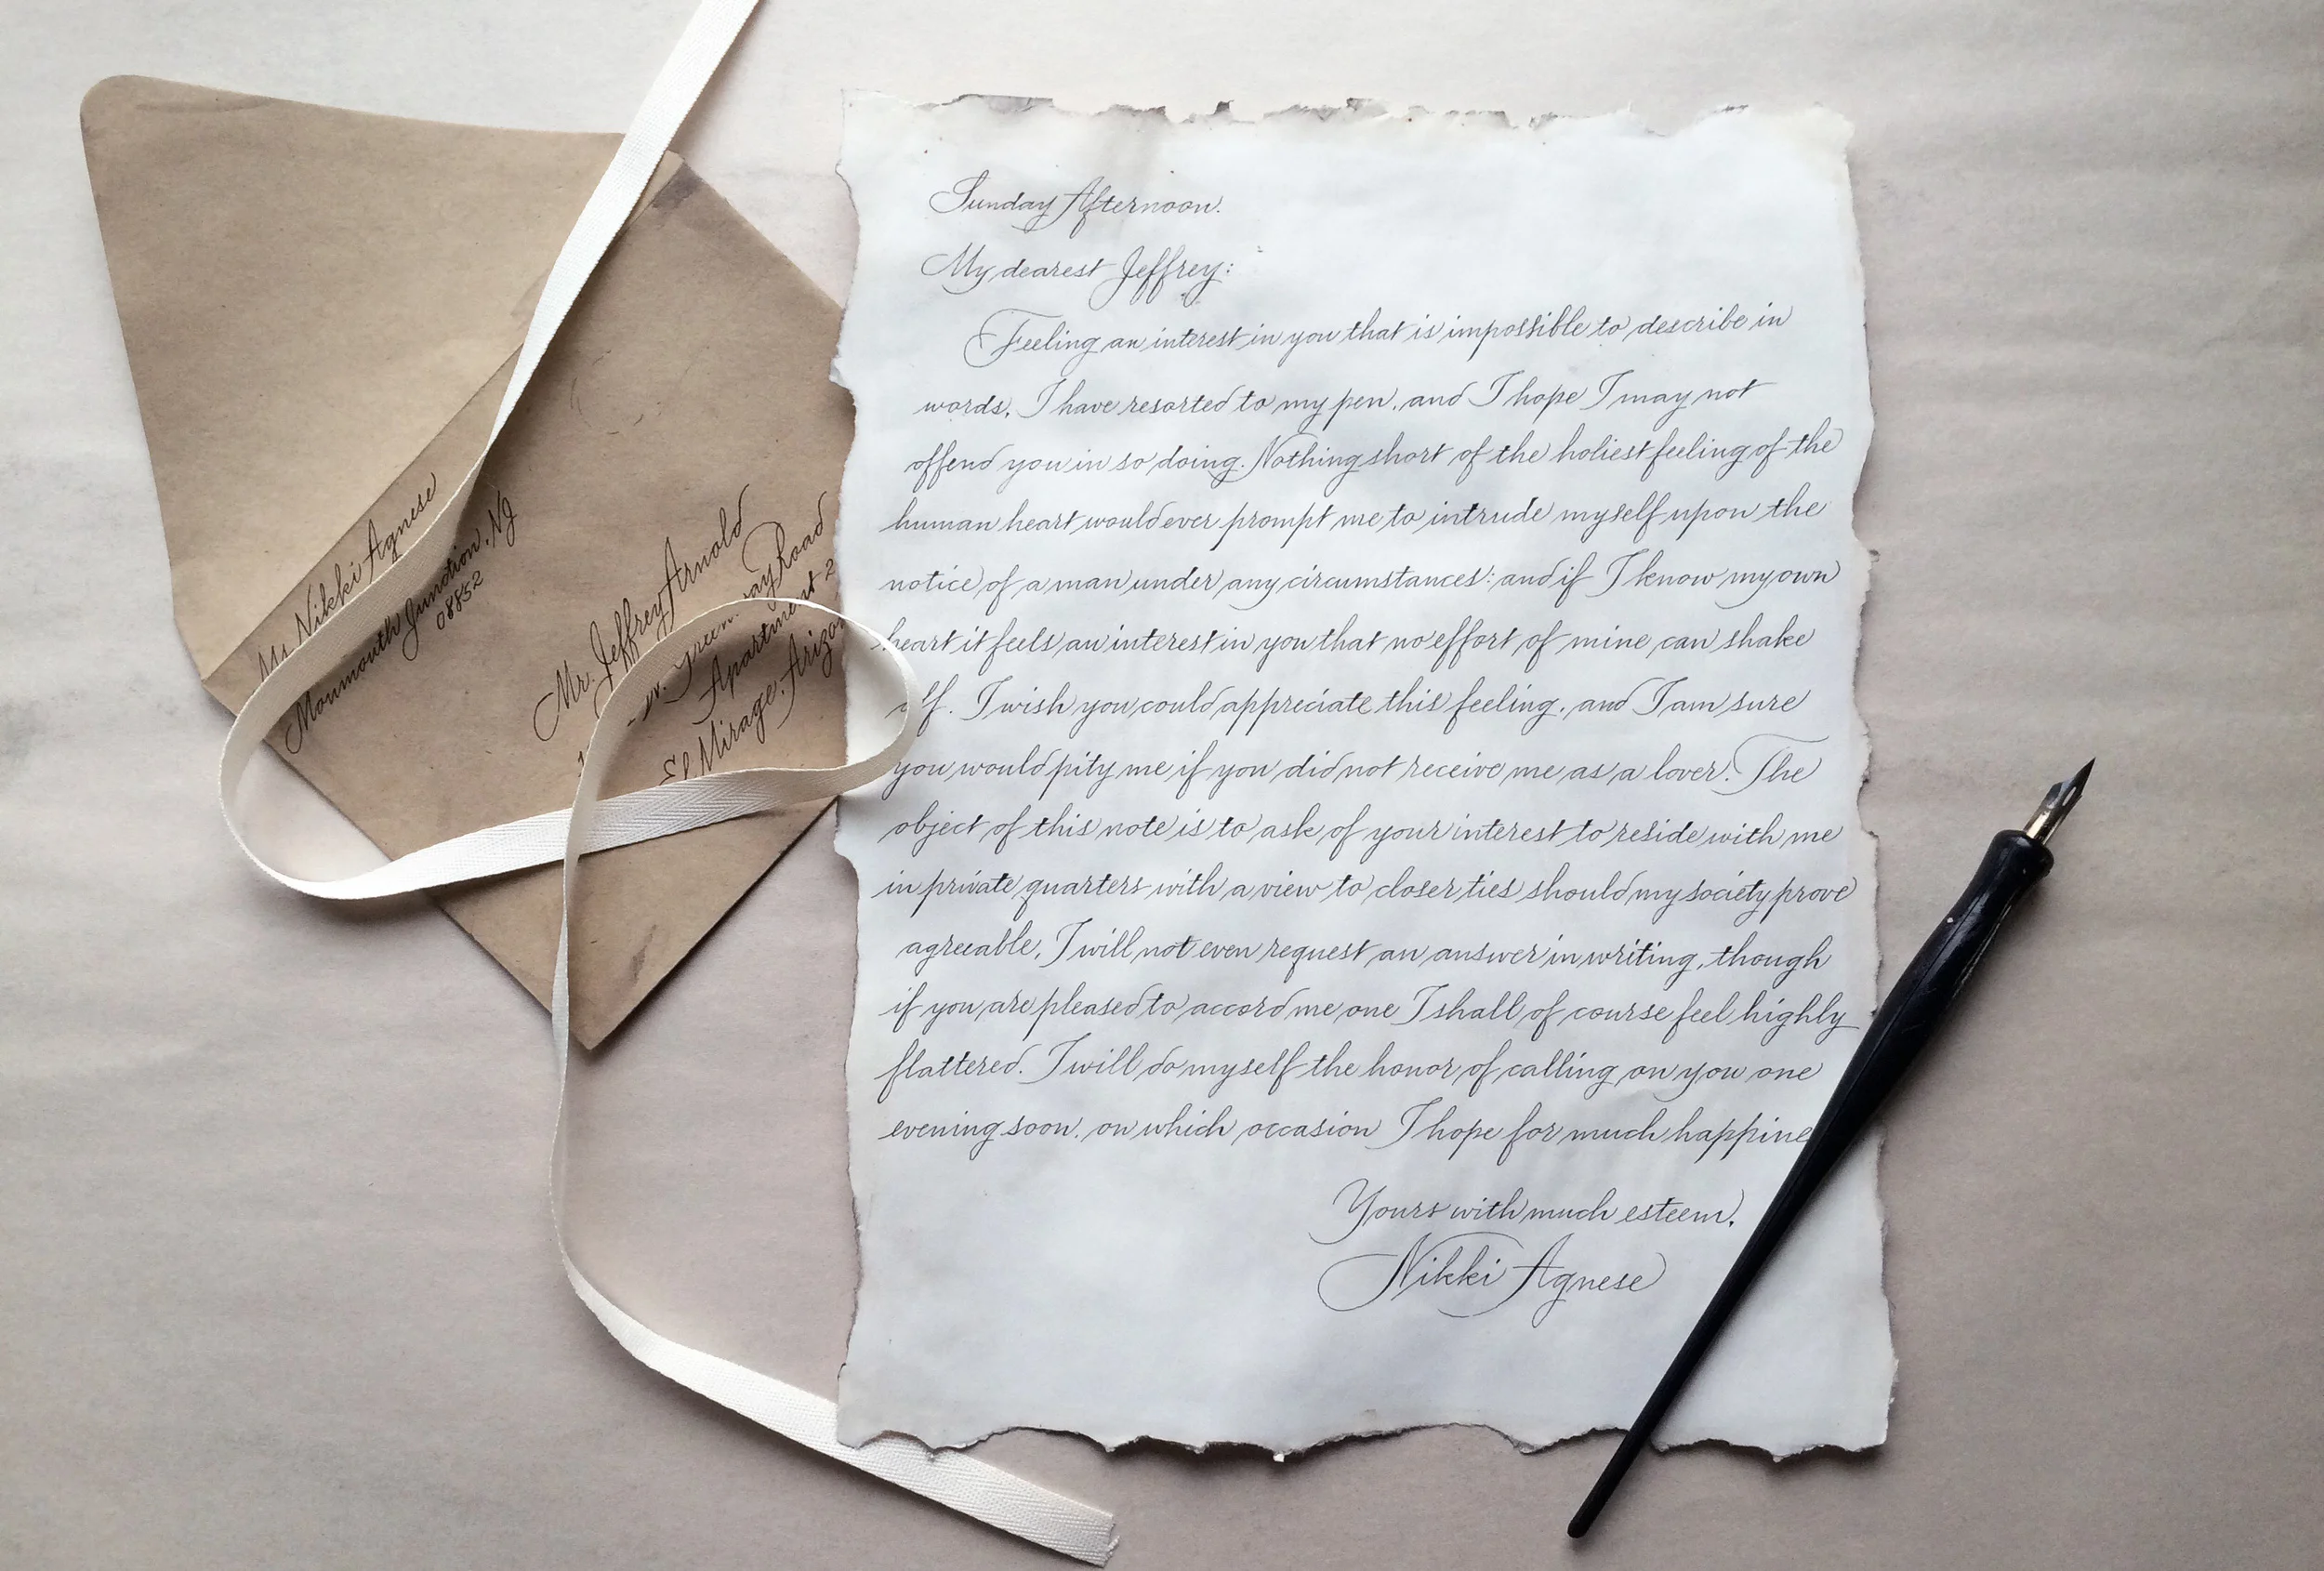 Nikki Agnese
Monmouth Junction, NJ
08852
Mr. Jeffrey Arnold
Road
Apartment 2
El Mirage, Arizo
Sunday Afternoon.
My dearest Jeffrey:
Feeling an interest in you that is impossible to describe in
words, I have resorted to my pen, and I hope I may not
offend you in so doing. Nothing short of the holiest feeling of the
human heart would ever prompt me to intrude myself upon the
notice of a man under any circumstances: and if I know my own
heart it feels an interest in you that no effort of mine can shake
off. I wish you could appreciate this feeling, and I am sure
you would pity me if you did not receive me as a lover. The
object of this note is to ask of your interest to reside with me
in private quarters with a view to closer ties should my society prove
agreeable, I will not even request an answer in writing, though
if you are pleased to accord me one I shall of course feel highly
flattered. I will do myself the honor of calling on you one
evening soon, on which occasion I hope for much happine
Yours with much esteem,
Nikki Agnese